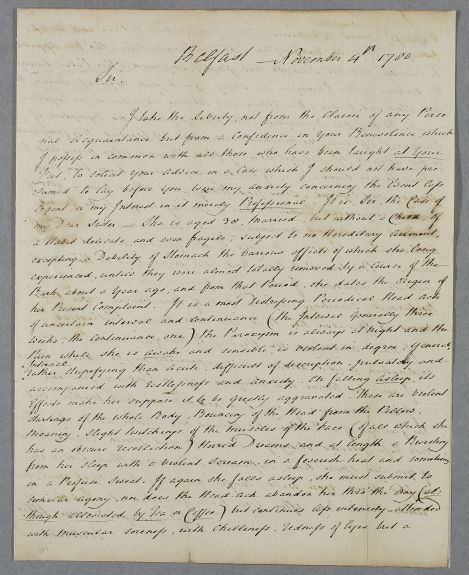 Belfast — November 4th 1780
Sir.
I take the Liberty, not from the Claim of any Perso
nal Acquaintance but from a Confidence in Your Benevolence, which
I possess in common with all those who have been taught at Your
Feet, to solicit Your Advice in a Case which I should not have pre
sumed to lay before You, were my anxiety concerning the Event less
urgent or my Interest in it merely Professional. It is, Sir, the Case of
my Dear Sister — She is aged 38 Married but without a Child, of
a Habit delicate and even fragile; subject to no Hereditary Ailment,
excepting a Debility of Stomach the various effects of which she long
experienced, untill they were almost totally removed by a Course of the
Bark, about a Year ago, and from that Period, she dates the Origin of
her Present Complaint. It is a most Distressing Periodical Head ach
of uncertain interval and continuance (the Interval Generally three
weeks, the continuance, one) the Paroxysm is always at night and the
Pain while she is awake and sensible, is violent in degree, General
Internal
rather stupifying than acute, difficult of description, pulsatory and
accompanied with restlessness and anxiety. On falling asleep its
effects make her suppose it to be greatly aggravated. These are violent
Startings of the whole Body, Bouncing of the Head from the Pillow,
Moaning, slight twitchings of the muscles of the face (of all which she
has an obscure recollection) Horrid Dreams, and at length a Bursting
from her Sleep with a violent Scream, in a feverish heat and sometimes
in a Profuse Sweat. If again she falls asleep, she must submit to
similar agony, nor does the Head ach abandon her thro' the Day (al
though alleviated by Tea or Coffee) but continues less intensely attended
with muscular soreness, with Chilliness, redness of Eyes but a